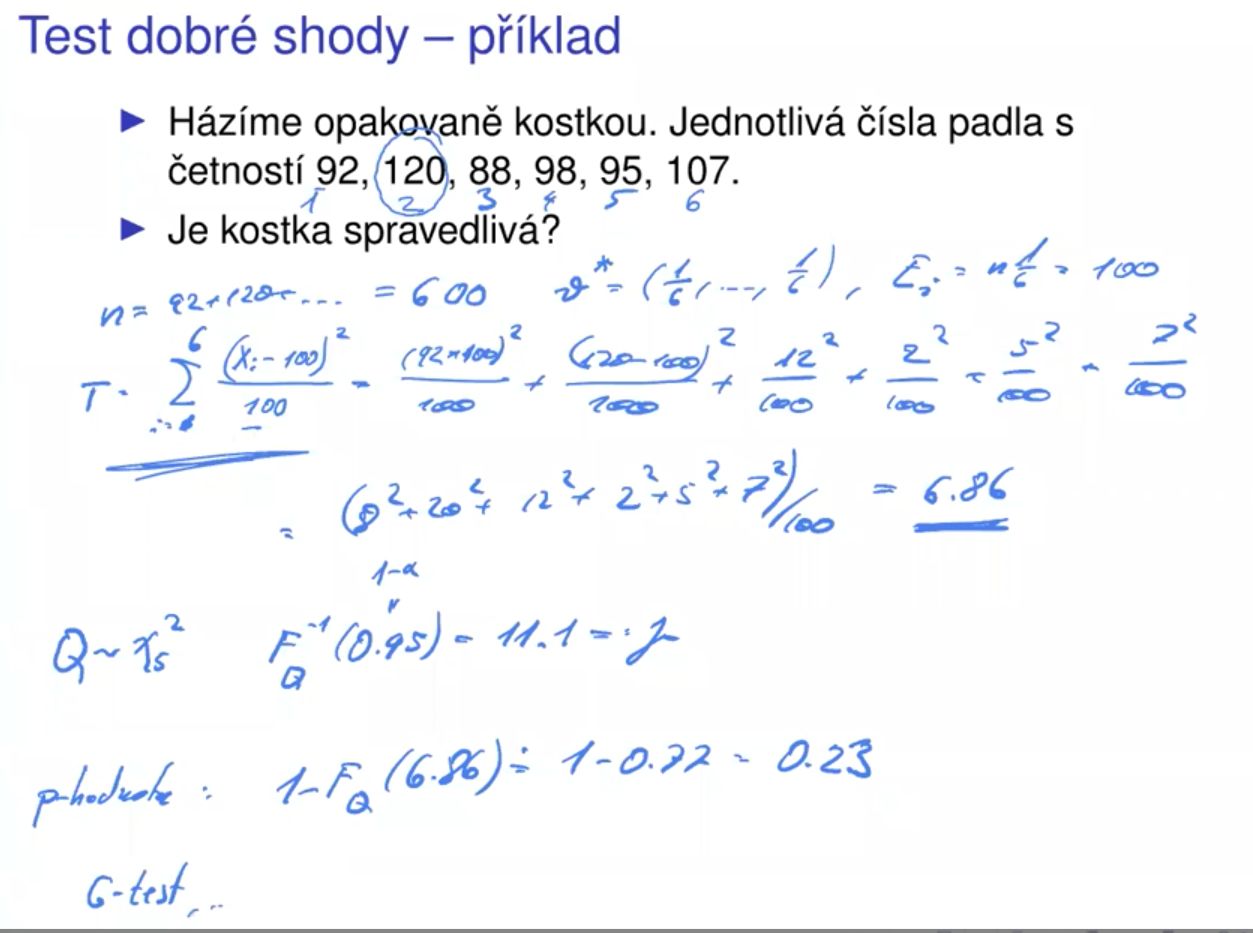 Test dobré shody – příklad
► Házíme opakovaně kostkou. Jednotlivá čísla padla s
četností 92, 120, 88, 98, 95, 107.
1 2 3 4 5 6
► Je kostka spravedlivá?
n = 92+120+... = 600 ϑ* = (1/6, ..., 1/6), E_i = n 1/6 = 100
T = ∑_{i=1}^{6} (X_i - 100)²/100 = (92-100)²/100 + (120-100)²/100 + 12²/100 + 2²/100 + 5²/100 + 7²/100
= (8² + 20² + 12² + 2² + 5² + 7²)/100 = 6.86
1-α
Q ~ χ₅² F_Q^{-1}(0.95) = 11.1 =: γ
p-hodnota : 1-F_Q(6.86) ≐ 1-0.77 = 0.23
G-test...